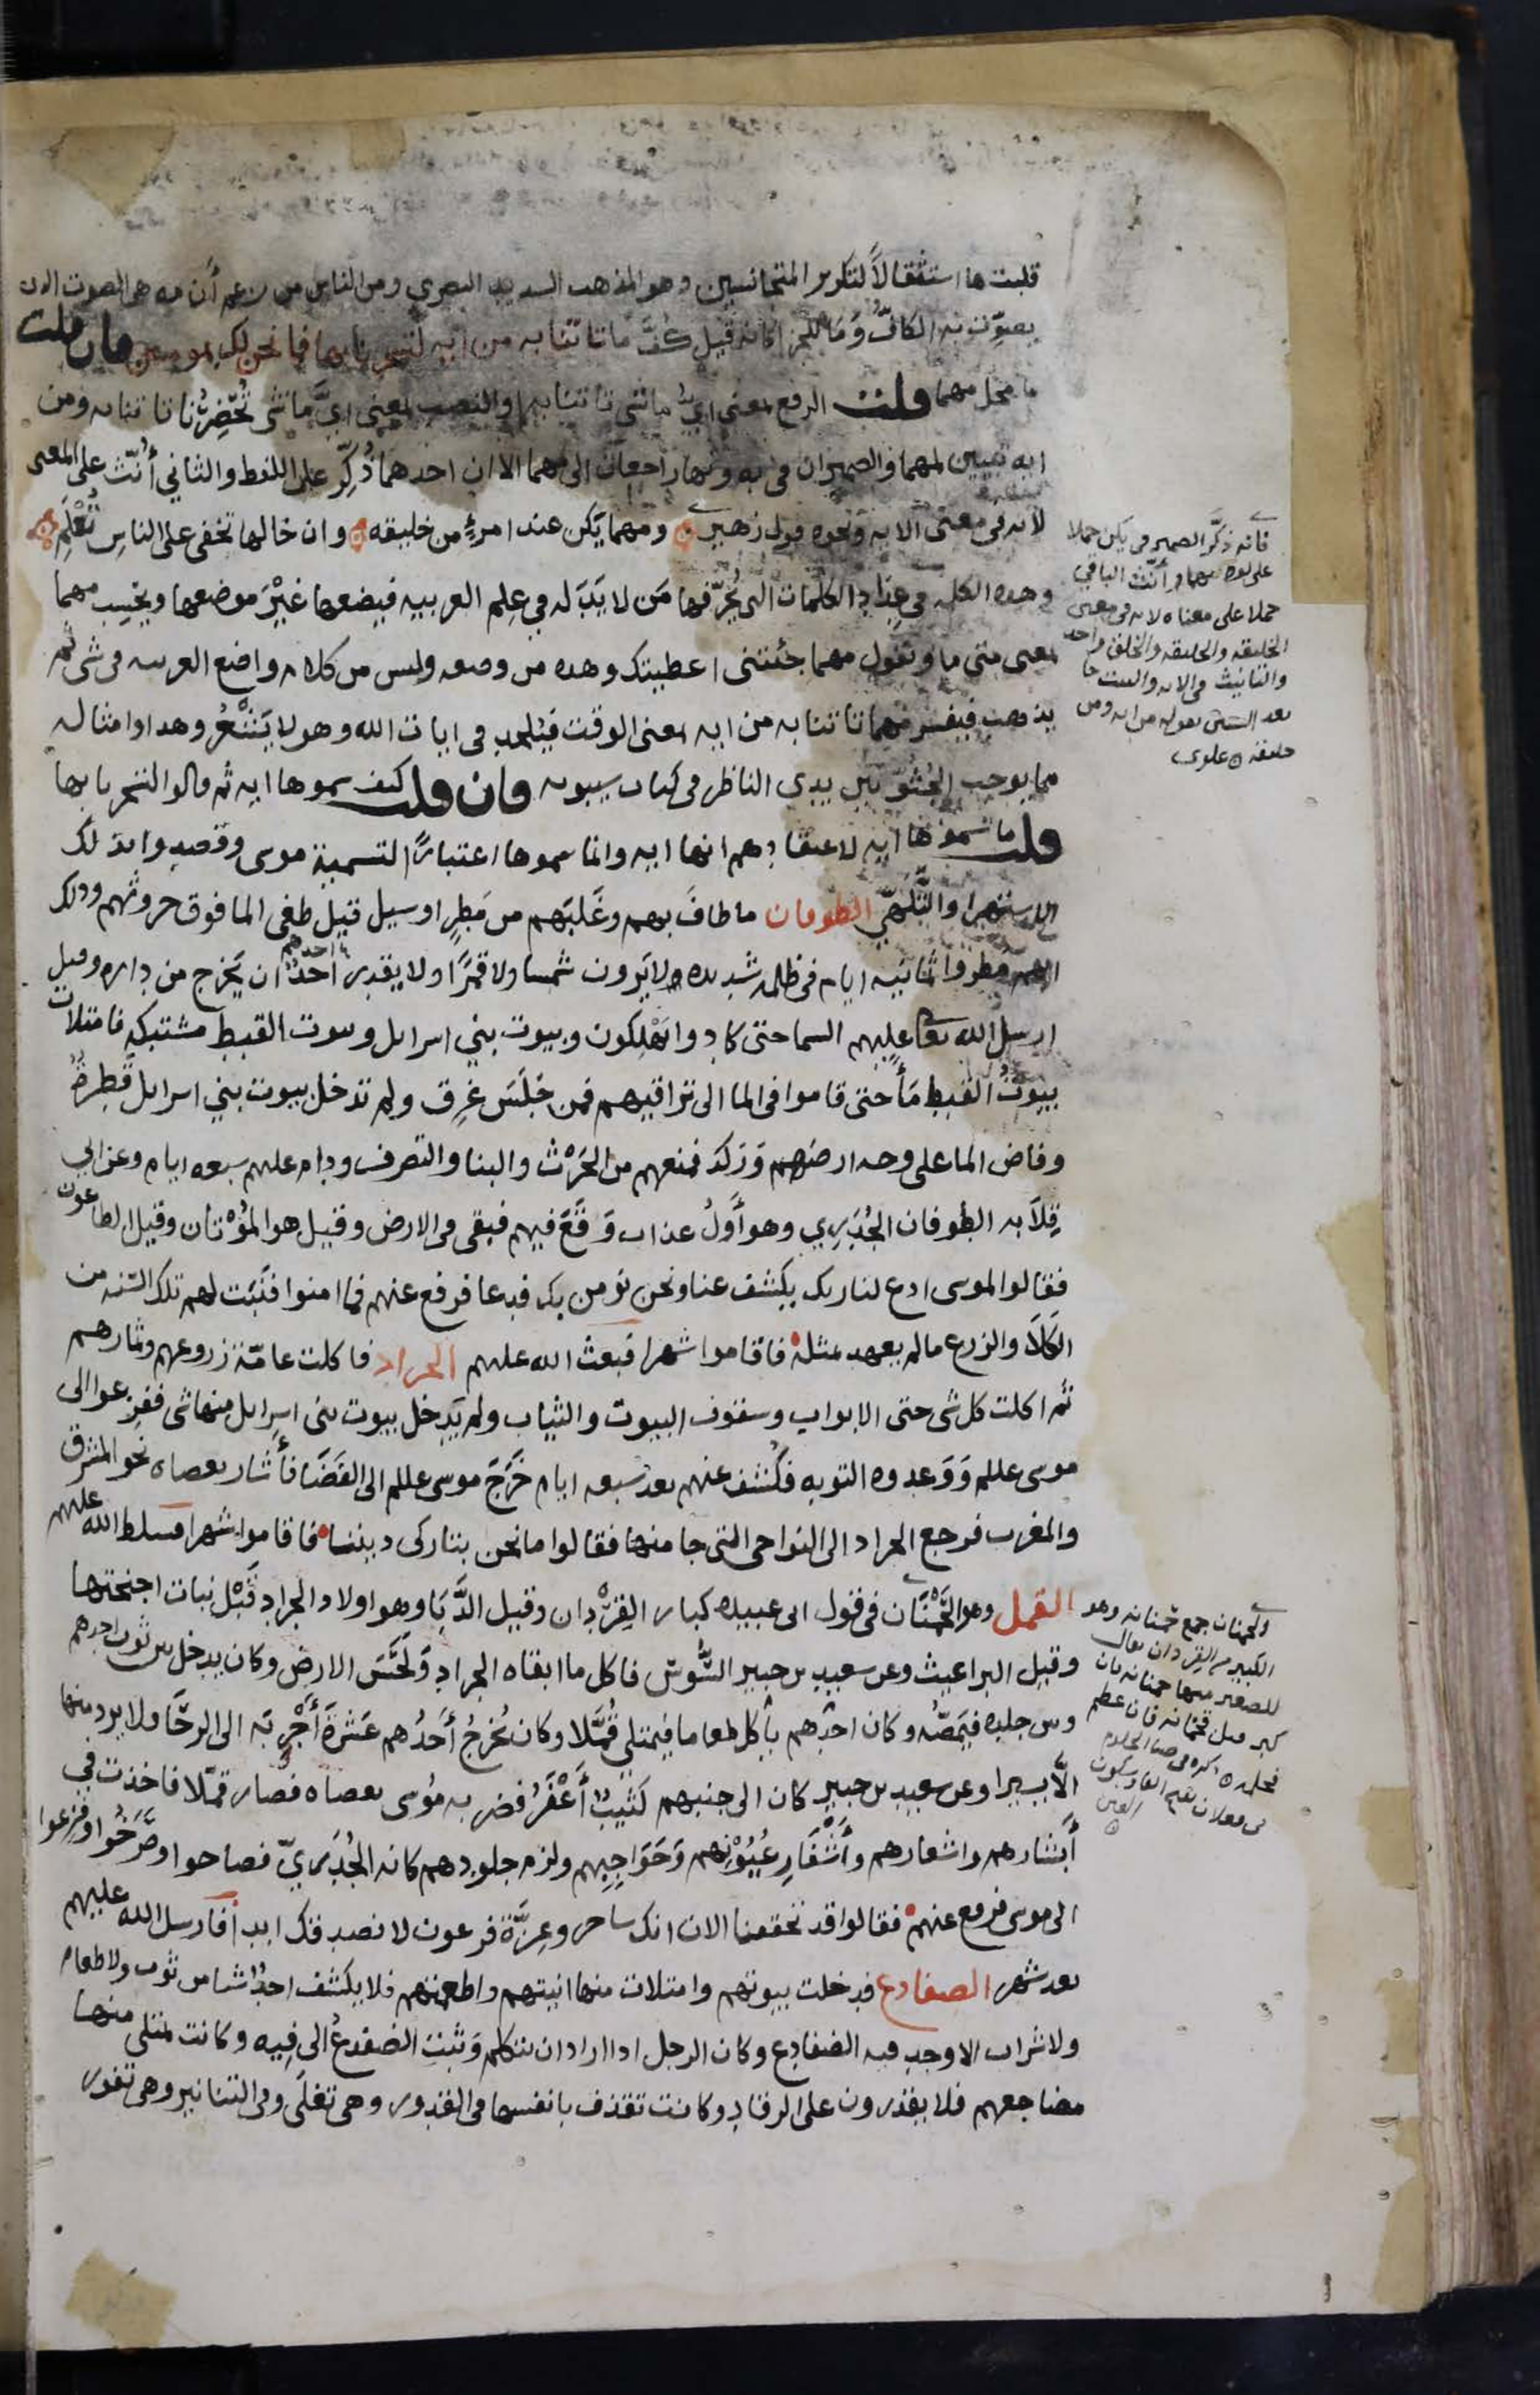 قلبت ها استثقالاً لتكرير المتجانسين وهو المذهب السديد البصري ومن الناس من زعم أن مه هي الصوت الذي
يصوّت به الكافّ وما للجزا كانه قيل كُفَّ ما تاتنا به من ايه لتسحرنا بها فما نحن لك بمومنين فان قلت
ما محل مهما قلت الرفع بمعنى ايُّ ما شي تاتنا به او النصب بمعنى ايَّ ما شي تُحضِرُنا تاتنا به ومن
ايه تبيين لمهما والضميران في به وبها راجعان الى مهما الا ان احدهما ذُكِّر على اللفظ والثاني أُنّث على المعنى
لانه في معنى الايه ونحوه قول زهير ومهما يكن عند امرءٍ من خليقه وان خالها تخفى على الناسِ تُعْلَمِ
وهذه الكلمه في عِدَادِ الكلمات التي يُحَرّفها مَن لا يَدَ له في عِلم العربيه فيضعها غيْرَ موضعها ويحْسِب مهما
بمعنى متى ما وتقول مهما جئتني اعطيتك وهذه من وضعه وليس من كلام واضع العربيه في شي ثم
يذهب فيفسر مهما تاتنا به من ايه بمعنى الوقت فيُلحد في ايات الله وهو لا يَشْعُر وهذا وامثاله
مما يوجب الجُثُوّ بين يدي الناظر في كتاب سيبويه فان قلت كيف سموها ايه ثم قالوا لتسحرنا بها
قلت ما سموها ايه لاعتقادهم انها ايه وانما سموها اعتبارًا لتسمية موسى وقصدوا بذلك
الاستهزا والتَّلَهّي الطوفان ما طافَ بهم وغَلبَهم من مَطرٍ او سيل قيل طغى الما فوق حروثهم وذلك
انهم مطروا ثمانيه ايام في ظلمه شديده ولا يَرون شمسا ولا قمَرًا ولا يقدر احدهم ان يَخرج من داره وقيل
ارسل الله تعا عليهم السما حتى كادوا يَهْلِكون وبيوت بني اسرايل وبيوت القبط مشتبكه فامتلات
بيوتُ القبط مَأً حتى قاموا في الما الى تراقيهم فمن جَلَسَ غرِق ولم تدخل بيوت بني اسرايل قَطِرةٌ
وفاض الما على وجه ارضهم وَرَكَدَ فمنعهم من الحَرْث والبنا والتصرف ودام عليهم سبعه ايام وعن ابي
قِلاَبه الطوفان الجُدَرِي وهو أوَلُ عذاب وَقَعَ فيهم فبقى في الارض وقيل هو المُوْتان وقيل الطاعون
فقالوا لموسى ادع لنا ربك يكشف عنا ونحن نومن بك فدعا فرفع عنهم فما امنوا فنَبَت لهم تلك السنه من
الكَلأ والزرع ما لم يعهد بمثله فاقاموا شهرا فبعث الله عليهم الجراد فاكلت عامّة زروعهم وثمارهم
ثم اكلت كل شي حتى الابواب وسقوف البيوت والثياب ولم يَدخل بيوت بني اسرايل منها شي ففزعوا الى
موسى عللم وَوَعدوه التوبه فكُشف عنهم بعد سبعه ايام خَرَجَ موسى عللم الى الفَضَا فأشار بعصاه نحو المشرق
والمغرب فرجع الجراد الى النواحي التي جا منها فقالوا ما نحن بتاركي ديننا فاقاموا شهرا فسلط الله عليهم
القمل وهو الحَمْنَان في قول ابى عبيده كبار القِرْدان وقيل الدَّبَا وهو اولاد الجراد قَبْل نبات اجنحتها
وقيل البراغيث وعن سعيد بن جبير السُّوس فاكل ما ابقاه الجراد وَلَحَسَ الارض وكان يدخل بين ثوب احدهم
وبين جلده فيَمَصّه وكان احدهم يأكل طعاما فيمتلي قُمَّلا وكان يُخرجُ أحَدُهم عَشرَةَ أجْرِبَه الى الرحَا ولا يرد منها
الّا يسيرا وعن سعيد بن جبير كان الى جنبهم كَثيبٌ أعْفَرُ فضربه مُوسى بعصاه فصار قمّلا فاخذت في
أبشارهم واشعارهم وأشْفَارِ عُيُوْنِهم وَحَوَاجِبِهم ولزم جلودهم كانه الجُدَرِيّ فصاحوا وصَرَخُوا وفزعوا
الى موسى فرفع عنهم فقالوا قد تحققنا الان انك ساحر وعِزّة فرعون لا نصدقك ابداً فارسل الله عليهم
بعد شهر الضفادع فدخلت بيوتهم وامتلات منها انيتهم واطعمتهم فلا يكشف احدٌ شيا من ثوب ولا طعام
ولا شراب الا وجد فيه الضفادع وكان الرجل اذا اراد ان يتكلم وَثبت الضفدعُ الى فِيه وكانت تمتلي منها
مضاجعهم فلا يقدرون على الرقاد وكانت تقذف بانفسها في القدور وهي تغلي وفي التنانير وهي تفور
فانه ذكّر الضمير في يكن حملا
على لفظ مهما وأنّث الباقي
حملا على معناه لانه في معنى
الخليقه والخليقه والخلق واحد
والتانيث في الايه والبيت جا
بعد التبيين بقوله من ايه ومن
خليقه علوى
والحمنان جمع حمنانه وهو
الكبير من القردان يقال
للصغير منها حمنانه فان
كبر قيل قمقامه فان عظم